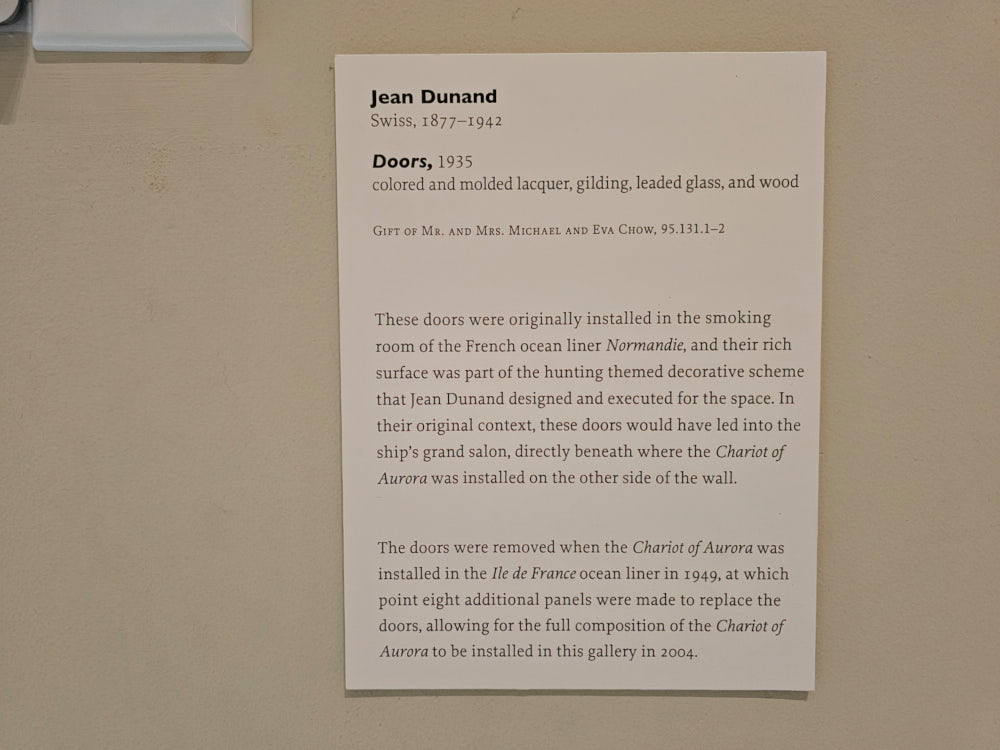 Jean Dunand
Swiss, 1877–1942
Doors, 1935
colored and molded lacquer, gilding, leaded glass, and wood
Gift of Mr. and Mrs. Michael and Eva Chow, 95.131.1–2
These doors were originally installed in the smoking
room of the French ocean liner Normandie, and their rich
surface was part of the hunting themed decorative scheme
that Jean Dunand designed and executed for the space. In
their original context, these doors would have led into the
ship's grand salon, directly beneath where the Chariot of
Aurora was installed on the other side of the wall.
The doors were removed when the Chariot of Aurora was
installed in the Ile de France ocean liner in 1949, at which
point eight additional panels were made to replace the
doors, allowing for the full composition of the Chariot of
Aurora to be installed in this gallery in 2004.